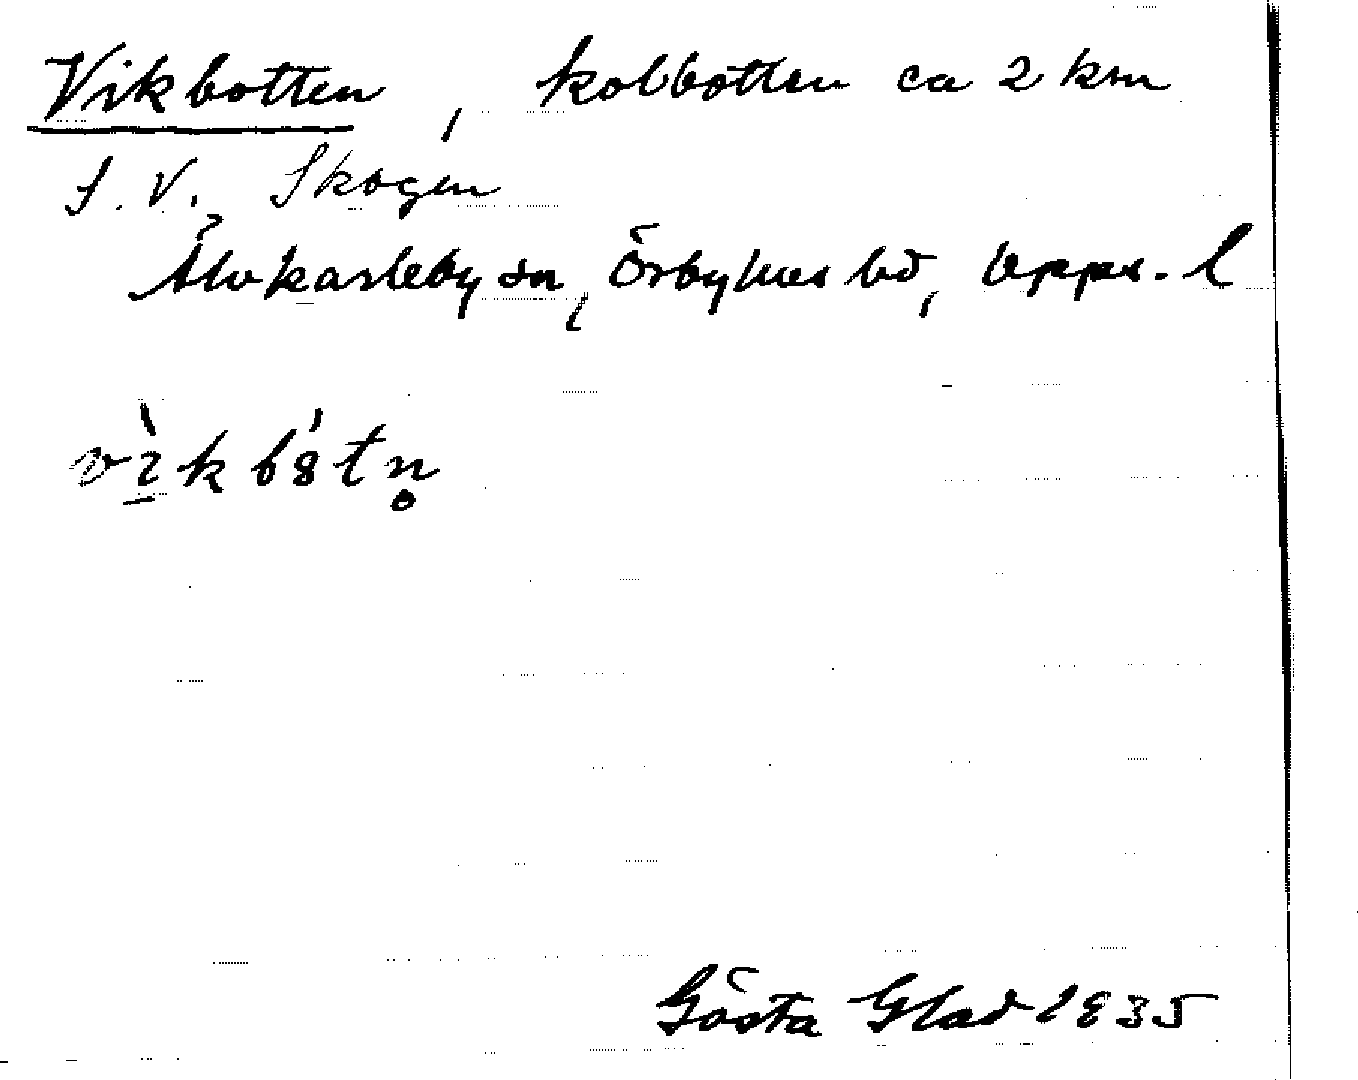 Vikbotten, kolbotten ca 2 km
S.V. Skogen
Älvkarleby sn, Örbyhus hd, Upps. l
Gösta Glad 1935